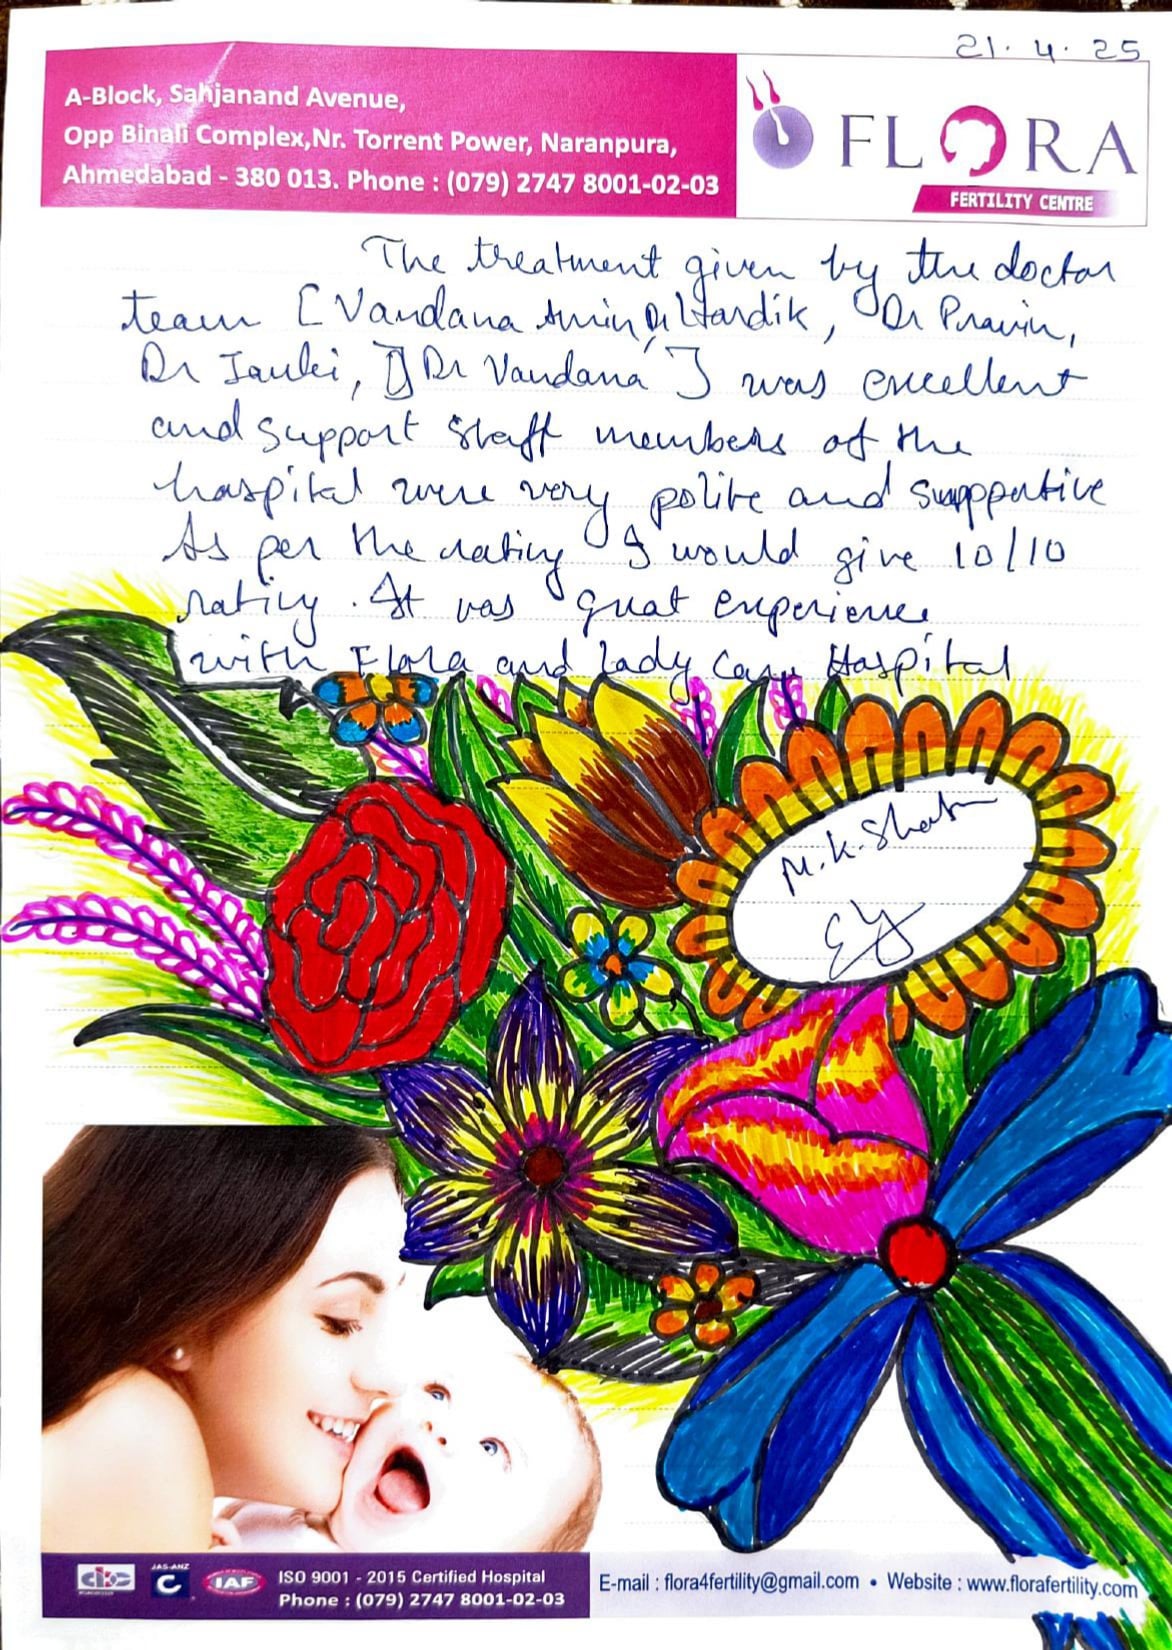 21. 4. 25
A-Block, Sahjanand Avenue,
Opp Binali Complex,Nr. Torrent Power, Naranpura,
Ahmedabad - 380 013. Phone : (079) 2747 8001-02-03
FLORA
FERTILITY CENTRE
The treatment given by the doctor
team [Vandana Amin, Dr Hardik, Dr Pravin,
Dr Janki, Dr Vandana] was excellent
and support staff members of the
hospital were very polite and supportive
As per the rating I would give 10/10
rating. It was great experience
with Flora and Lady Care Hospital
M.K.Shah
JAS-ANZ
C
IAF
ISO 9001 - 2015 Certified Hospital
Phone : (079) 2747 8001-02-03
E-mail : flora4fertility@gmail.com • Website : www.florafertility.com